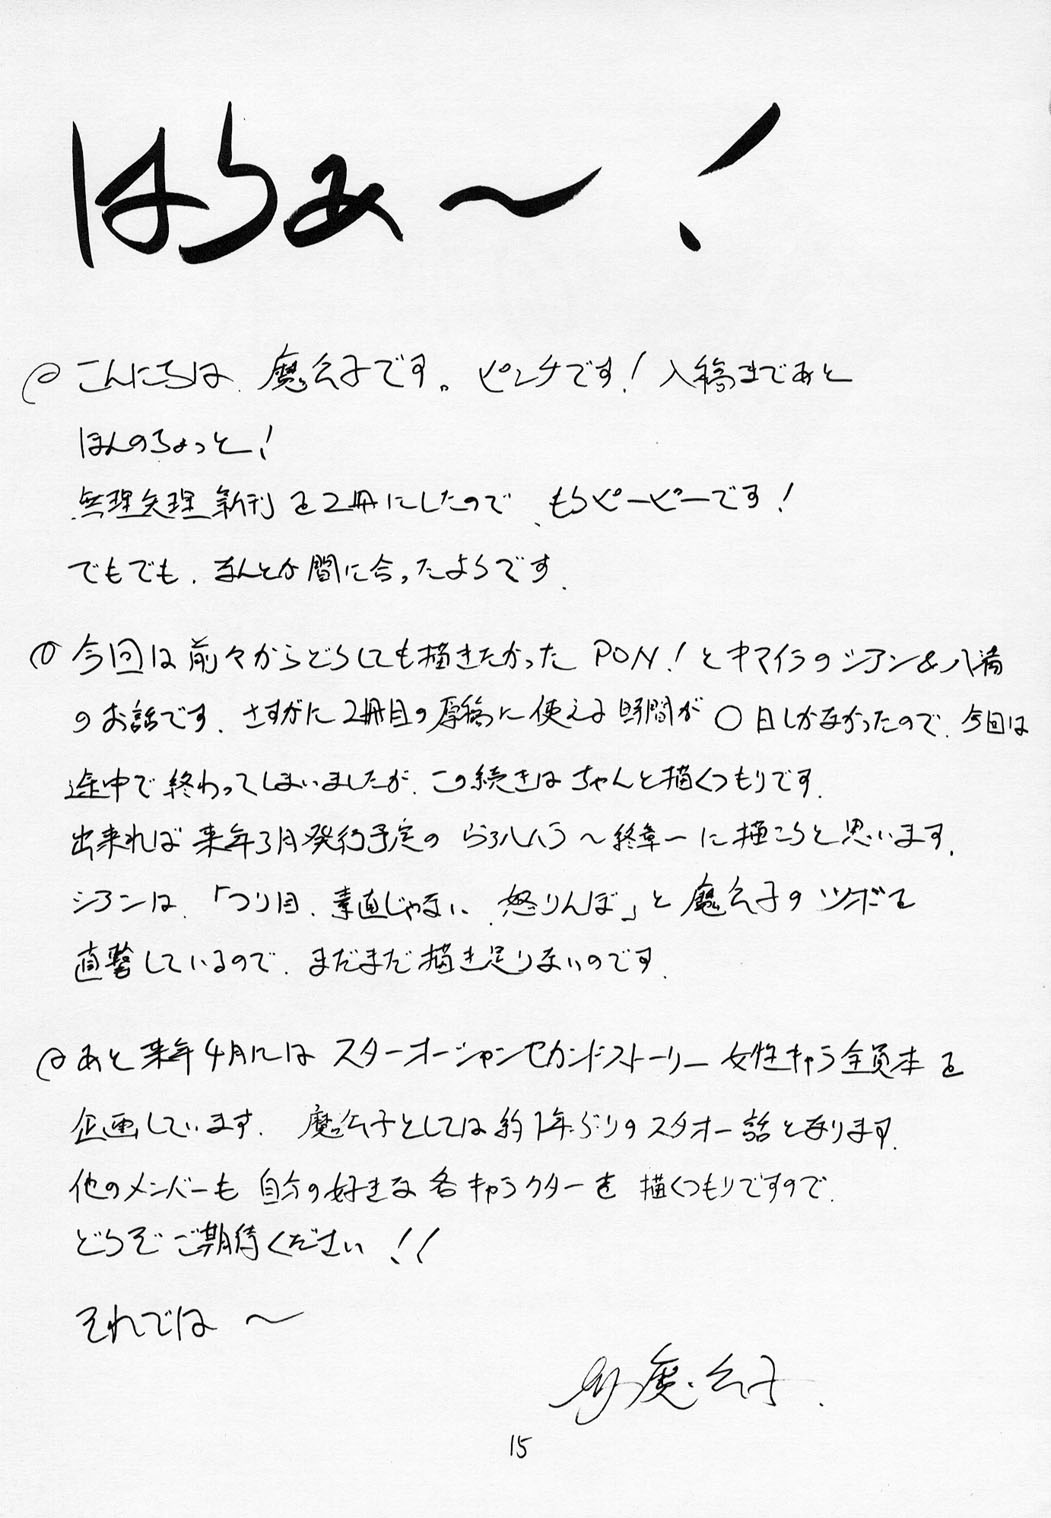 はらぁ〜！
こんにちは、魔公子です。ピンチです！入稿まであと
ほんのちょっと！
無理矢理新刊を2冊にしたので、もうピーピーです！
でもでも、なんとか間に合ったようです。
今回は前々からどうしても描きたかったPON！とキマイラのシアン&八満
のお話です。さすがに2冊目の原稿に使える時間が〇日しかなかったので、今回は
途中で終わってしまいましたが、この続きはちゃんと描くつもりです。
出来れば来年3月発行予定のらろハハラ〜終章〜に描こうと思います。
シアンは、「つり目、素直じゃない、怒りんぼ」と魔公子のツボを
直撃しているので、まだまだ描き足りないのです。
あと来年4月にはスターオーシャンセカンドストーリー女性キャラ全員本を
企画しています。魔公子としては約1年ぶりのスタオー話となります。
他のメンバーも自分の好きな各キャラクターを描くつもりですので、
どうぞご期待ください！！
それでは〜
魔公子.
15